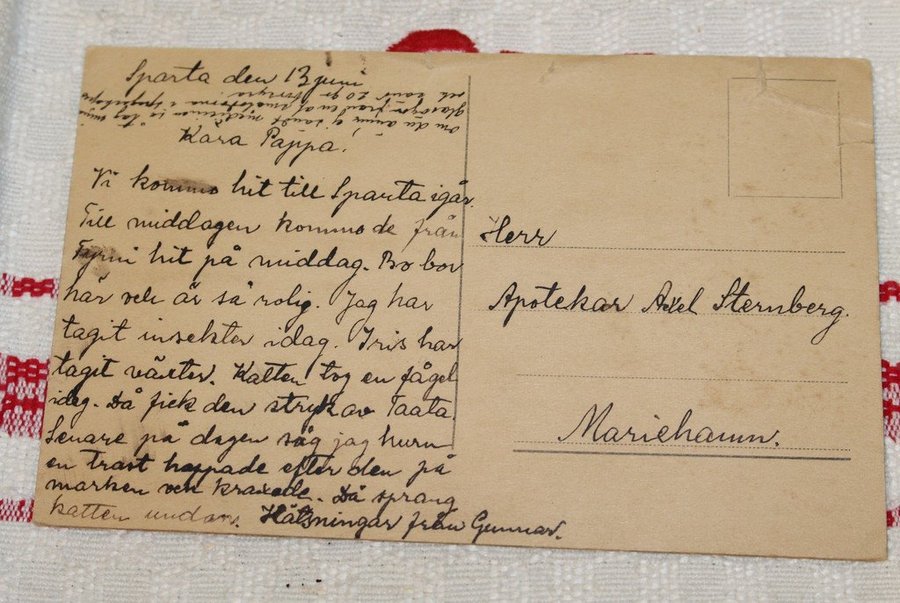 Sparta den 13 juni
om du ännu ej sändt medicinen i dag
och sänd 20 gr
Kära Pappa!
Vi kommo hit till Sparta igår.
Till middagen kommo de från
Tyrni hit på middag. Bo bor
här och är så rolig. Jag har
tagit insekter idag. Iris har
tagit växter. Katten tog en fågel
idag. Då fick den stryk av Taata.
Senare på dagen såg jag hurn
en trast hoppade efter den på
marken och kraxade. Då sprang
katten undan. Hälsningar från Gunnar.
Herr
Apotekar Axel Sternberg.
Mariehamn.